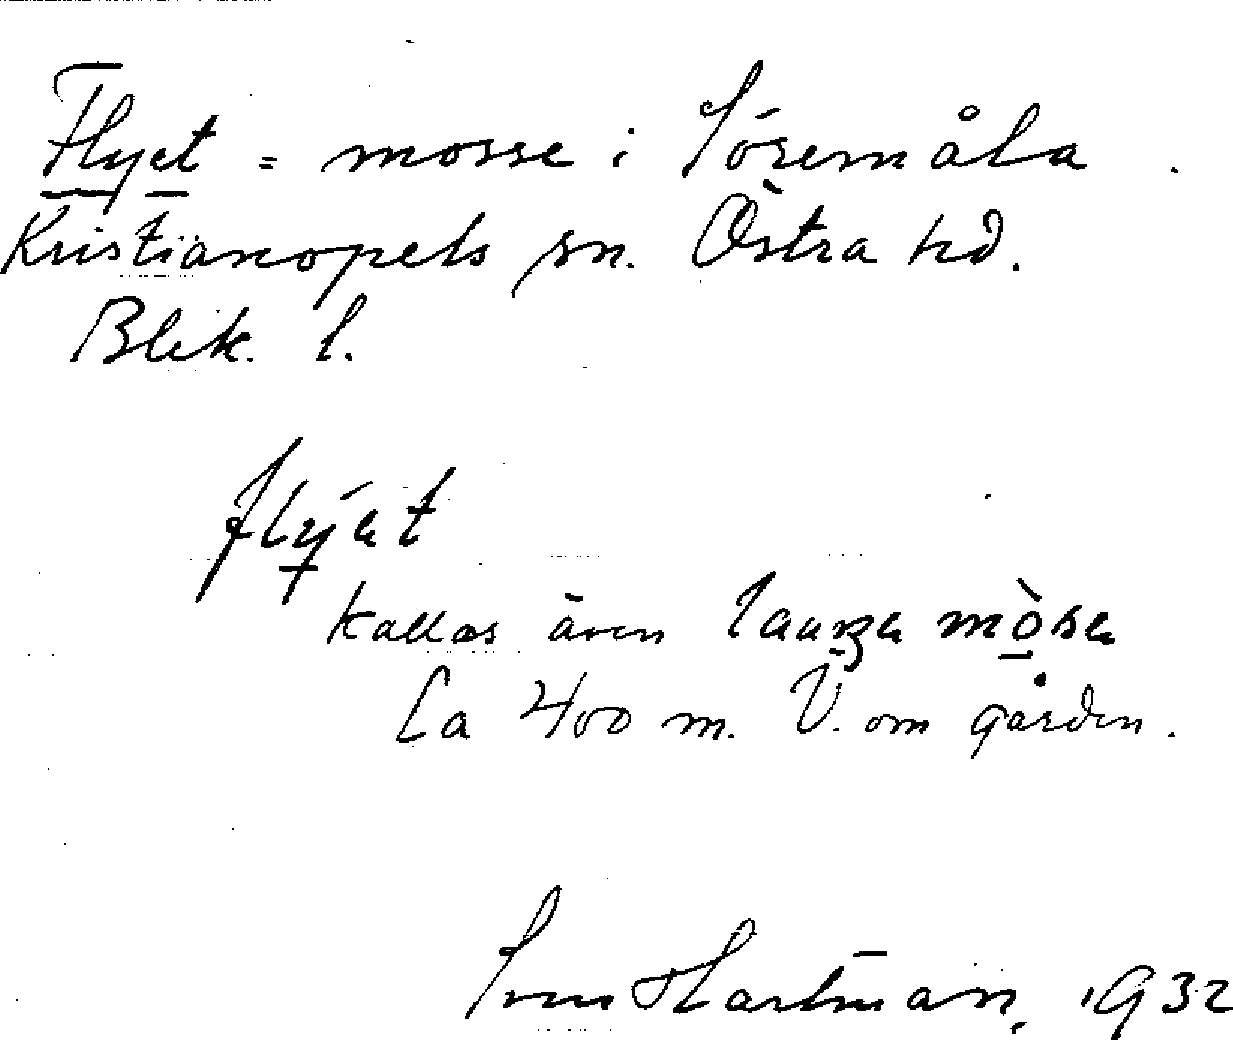 Flyet = mosse i Söremåla.
Kristianopels sn. Östra hd.
Blek. l.
flýet
kallas även
Ca 400 m. V. om gården.
Sven Hartman, 1932